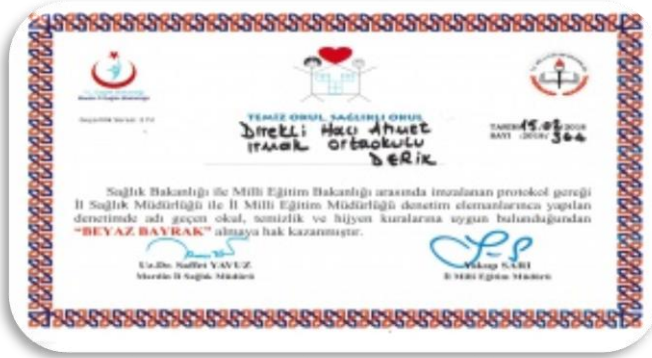 TEMİZ OKUL, SAĞLIKLI OKUL
Direkli Hacı Ahmet
Irmak Ortaokulu
DERİK
Sağlık Bakanlığı ile Milli Eğitim Bakanlığı arasında imzalanan protokol gereği
İl Sağlık Müdürlüğü ile İl Milli Eğitim Müdürlüğü denetim elemanlarınca yapılan
denetimde adı geçen okul, temizlik ve hijyen kuralarına uygun bulunduğundan
“BEYAZ BAYRAK” almaya hak kazanmıştır.
Uz.Dr. Saffet YAVUZ
Yakup SARI
Mardin İl Sağlık Müdürü
İl Milli Eğitim Müdürü